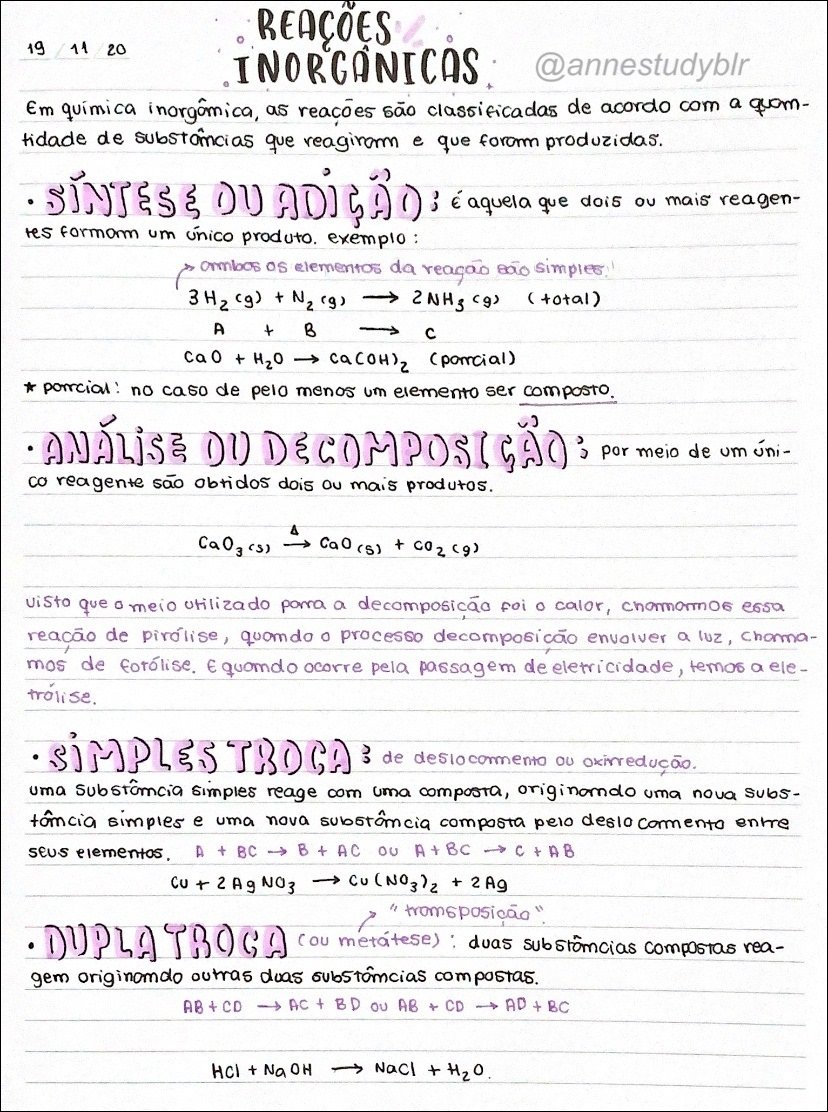 REAÇÕES
19 / 11 / 20
INORGÂNICAS
@annestudyblr
Em química inorgânica, as reações são classificadas de acordo com a quan-
tidade de substâncias que reagiram e que foram produzidas.
• SÍNTESE OU ADIÇÃO: é aquela que dois ou mais reagen-
tes formam um único produto. exemplo:
ambos os elementos da reação são simples!
3H₂(g) + N₂(g) → 2NH₃(g) (total)
A + B → C
CaO + H₂O → Ca(OH)₂ (parcial)
* parcial: no caso de pelo menos um elemento ser composto.
• ANÁLISE OU DECOMPOSIÇÃO: por meio de um úni-
co reagente são obtidos dois ou mais produtos.
Δ
CaO₃(s) → CaO(s) + CO₂(g)
visto que o meio utilizado para a decomposição foi o calor, chamamos essa
reação de pirólise, quando o processo decomposição envolver a luz, chama-
mos de fotólise. E quando ocorre pela passagem de eletricidade, temos a ele-
trólise.
• SIMPLES TROCA: de deslocamento ou oxirredução.
uma substância simples reage com uma composta, originando uma nova subs-
tância simples e uma nova substância composta pelo deslocamento entre
seus elementos. A + BC → B + AC ou A + BC → C + AB
Cu + 2AgNO₃ → Cu(NO₃)₂ + 2Ag
"transposição"
• DUPLA TROCA (ou metátese): duas substâncias compostas rea-
gem originando outras duas substâncias compostas.
AB + CD → AC + BD ou AB + CD → AD + BC
HCl + NaOH → NaCl + H₂O.